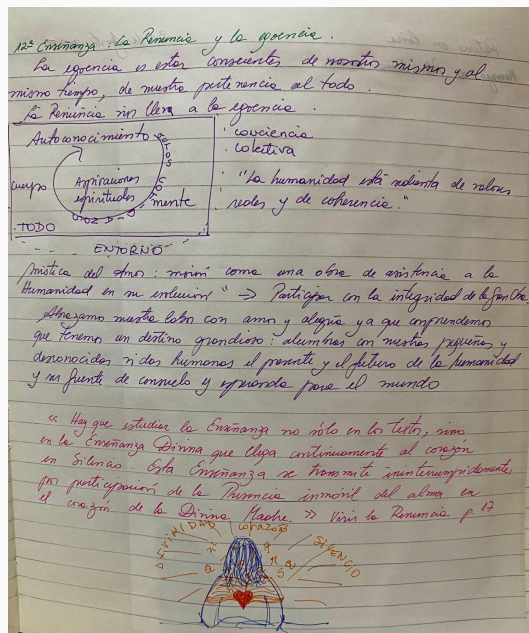 12ª Enseñanza: La Renuncia y la egoencia.
La egoencia es estar conscientes de nosotros mismos y al
mismo tiempo, de nuestra pertenencia al todo.
La Renuncia nos lleva a la egoencia.
Autoconocimiento
conciencia
colectiva
cuerpo
Aspiraciones
espirituales
mente
"La humanidad está sedienta de valores
reales y de coherencia."
TODO
ENTORNO
Mística del Amor: misión como una obra de asistencia a la
Humanidad en su evolución" → Participar con la integridad de la Gran Obra
Abrazamos nuestra labor con amor y alegría ya que comprendemos
que tenemos un destino grandioso: alumbrar con nuestras pequeñas y
desconocidas vidas humanas el presente y el futuro de la humanidad
y ser fuente de consuelo y esperanza para el mundo
« Hay que estudiar la Enseñanza no sólo en los textos, sino
en la Enseñanza Divina que llega continuamente al corazón
en Silencio. Esta Enseñanza se transmite ininterrumpidamente
por participación de la Presencia inmóvil del alma en
el corazón de la Divina Madre. » Vivir la Renuncia p. 17
DIVINIDAD
corazón
SILENCIO